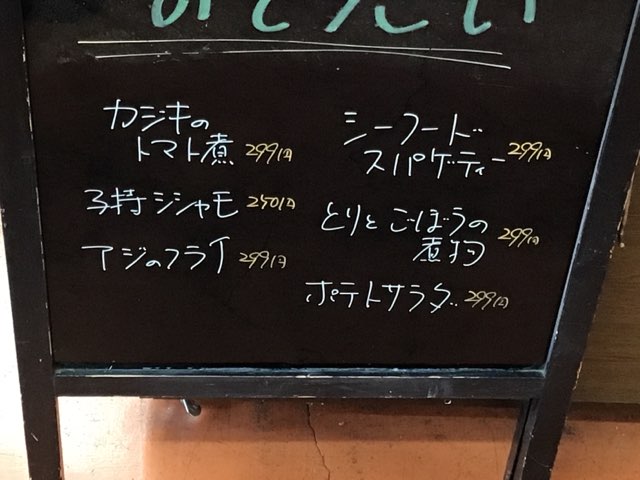 カジキの
トマト煮 299円
子持シシャモ 250円
アジのフライ 299円
シーフード
スパゲティー 299円
とりとごぼうの
煮物 299円
ポテトサラダ 299円